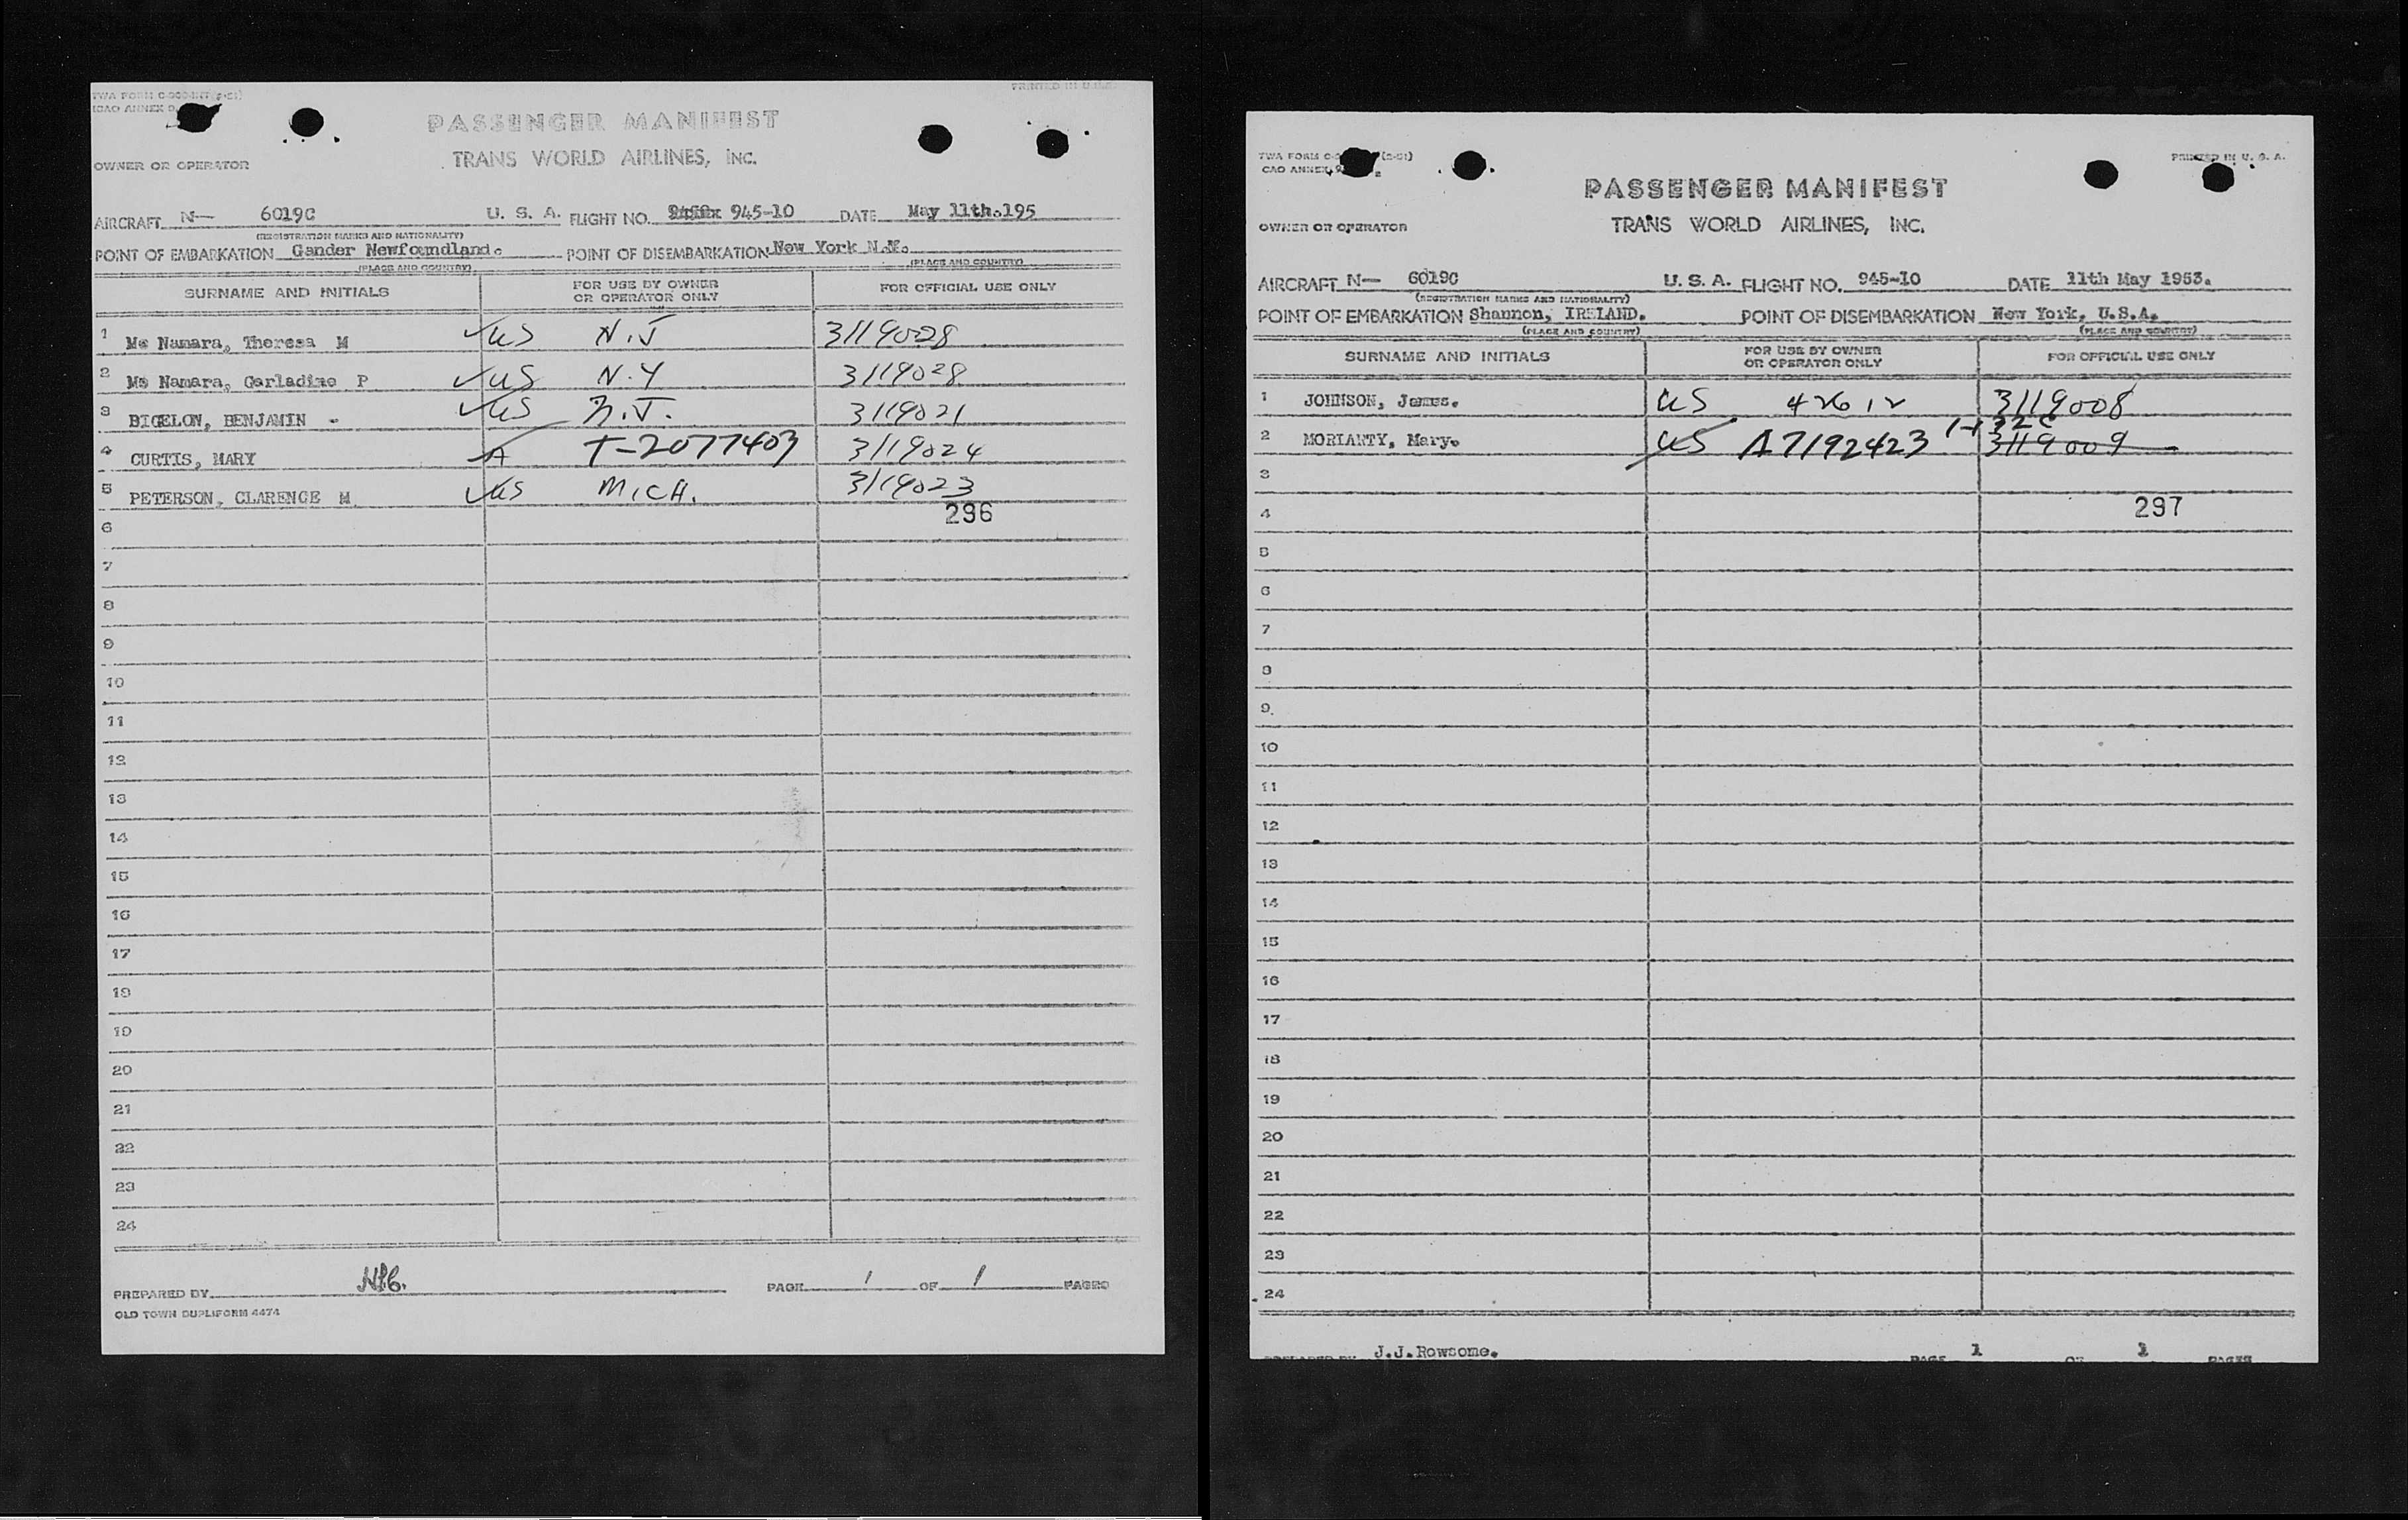 PRINTED IN U.S.A.
PASSENGER MANIFEST
TRANS WORLD AIRLINES, INC.
OWNER OR OPERATOR
AIRCRAFT N— 6019C U. S. A. FLIGHT NO. 945-10 DATE May 11th.195
(REGISTRATION MARKS AND NATIONALITY)
POINT OF EMBARKATION Gander Newfoundland. POINT OF DISEMBARKATION New York N.Y.
(PLACE AND COUNTRY) (PLACE AND COUNTRY)
SURNAME AND INITIALS FOR USE BY OWNER OR OPERATOR ONLY FOR OFFICIAL USE ONLY
1 Mc Namara, Theresa M US N.J 3119028
2 Mc Namara, Gerladine P US N.Y 3119028
3 BIGELON, BENJAMIN - US N.J. 3119021
4 CURTIS, MARY A T-2077403 3119024
5 PETERSON, CLARENCE M US MICH. 3119023
6 296
7
8
9
10
11
12
13
14
15
16
17
18
19
20
21
22
23
24
PREPARED BY PAGE 1 OF 1 PAGES
OLD TOWN DUPLIFORM 4474
TWA FORM (2-51) PRINTED IN U. S. A.
CAO ANNEX 9
PASSENGER MANIFEST
TRANS WORLD AIRLINES, INC.
OWNER OR OPERATOR
AIRCRAFT N— 6019C U. S. A. FLIGHT NO. 945-10 DATE 11th May 1953.
(REGISTRATION MARKS AND NATIONALITY)
POINT OF EMBARKATION Shannon, IRELAND. POINT OF DISEMBARKATION New York, U.S.A.
(PLACE AND COUNTRY) (PLACE AND COUNTRY)
SURNAME AND INITIALS FOR USE BY OWNER OR OPERATOR ONLY FOR OFFICIAL USE ONLY
1 JOHNSON, James. US 42612 3119008
2 MORIANTY, Mary. US A7192423 3119009
3
4 297
5
6
7
8
9
10
11
12
13
14
15
16
17
18
19
20
21
22
23
24
PREPARED BY J.J.Rowsome. PAGE 1 OF 1 PAGES